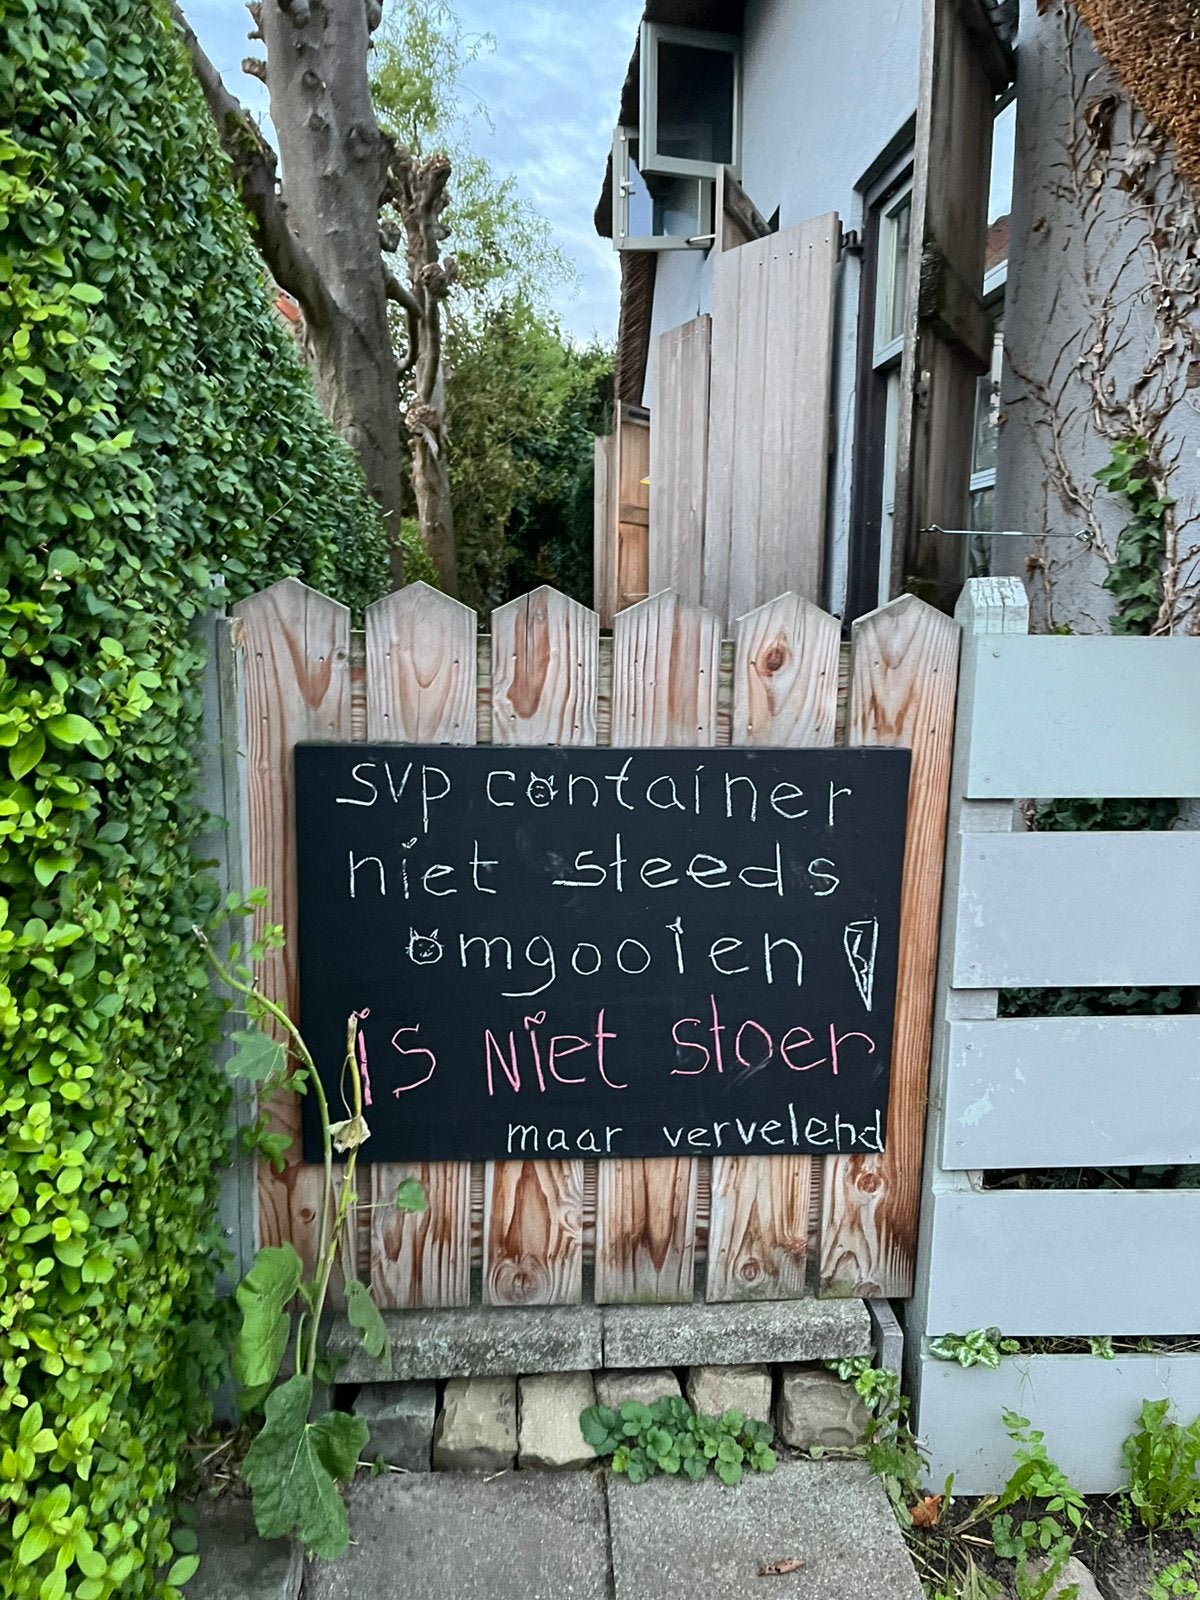 svp container
niet steeds
omgooien !
is niet stoer
maar vervelend